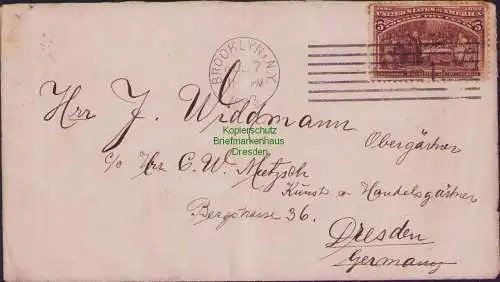 UNITED STATES OF AMERICA
BROOKLYN, N.Y.
7
PM
Herr J. Widdmann
Kopierschutz
Briefmarkenhaus
Dresden
Obergärtner
c/o Hrr C. W. Mietzsch
Kunst u Handelsgärtner
Bergstrasse 36.
Dresden
Germany